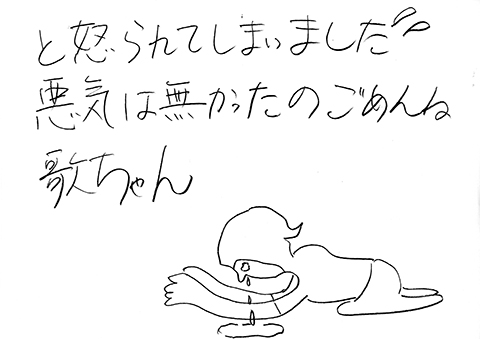 と怒られてしまいました
悪気は無かったのごめんね
歌ちゃん